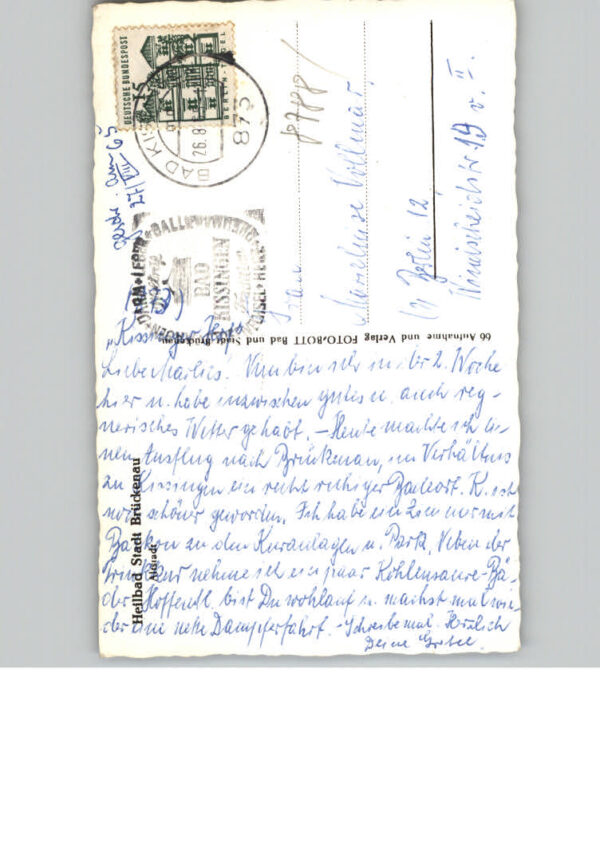 DEUTSCHE BUNDESPOST
BERLIN
TEGEL
878
BAD KISS
26.8
BAD
KISSINGEN
27/VIII 65
Frau
Marieluise Vollmar
1/ Berlin 12
19 v. II
66 Aufnahme und Verlag FOTO-BOTT Bad und Stadt Brückenau
Heilbad Stadt Brückenau
Altstadt
„Kissinger Hof"
Liebe Marlies. Nun bin ich in der 2. Woche
hier u. habe inzwischen gutes u. auch reg-
nerisches Wetter gehabt. – Heute machte ich ei-
nen Ausflug nach Brückenau, im Verhältnis
zu Kissingen ein recht ruhiger Badeort. K. ist
noch schöner geworden. Ich habe ein Zimmer mit
Balkon zu den Kuranlagen u. Park. Neben der
Trinkkur nehme ich ein paar Kohlensäure-Bä-
der. Hoffentl. bist Du wohlauf u. machst mal wie-
der eine nette Dampferfahrt. – Schreibe mal. Herzlich
Deine